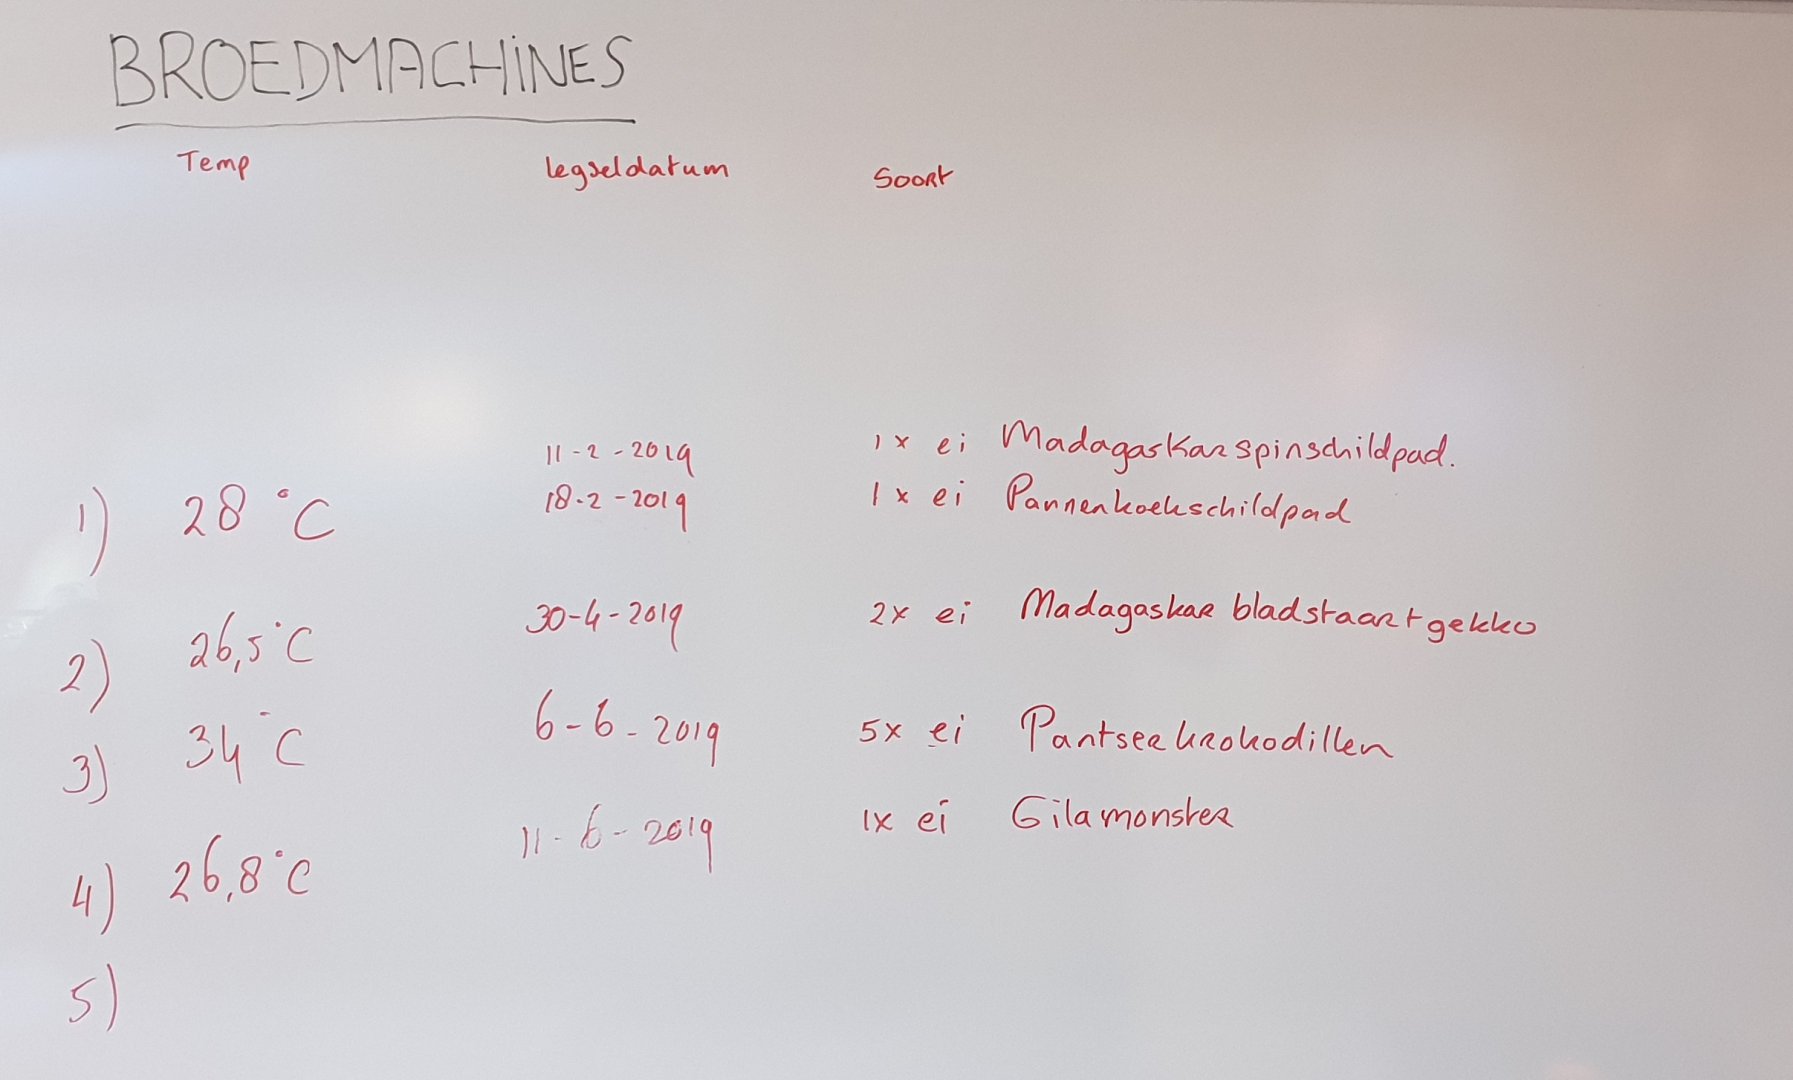 BROEDMACHINES
Temp legseldatum Soort
11-2-2019 1x ei Madagaskar spinschildpad.
1) 28 °C 18-2-2019 1x ei Pannenkoekschildpad
2) 26,5°C 30-4-2019 2x ei Madagaskar bladstaartgekko
3) 34°C 6-6-2019 5x ei Pantserkrokodillen
4) 26,8°C 11-6-2019 1x ei Gilamonster
5)